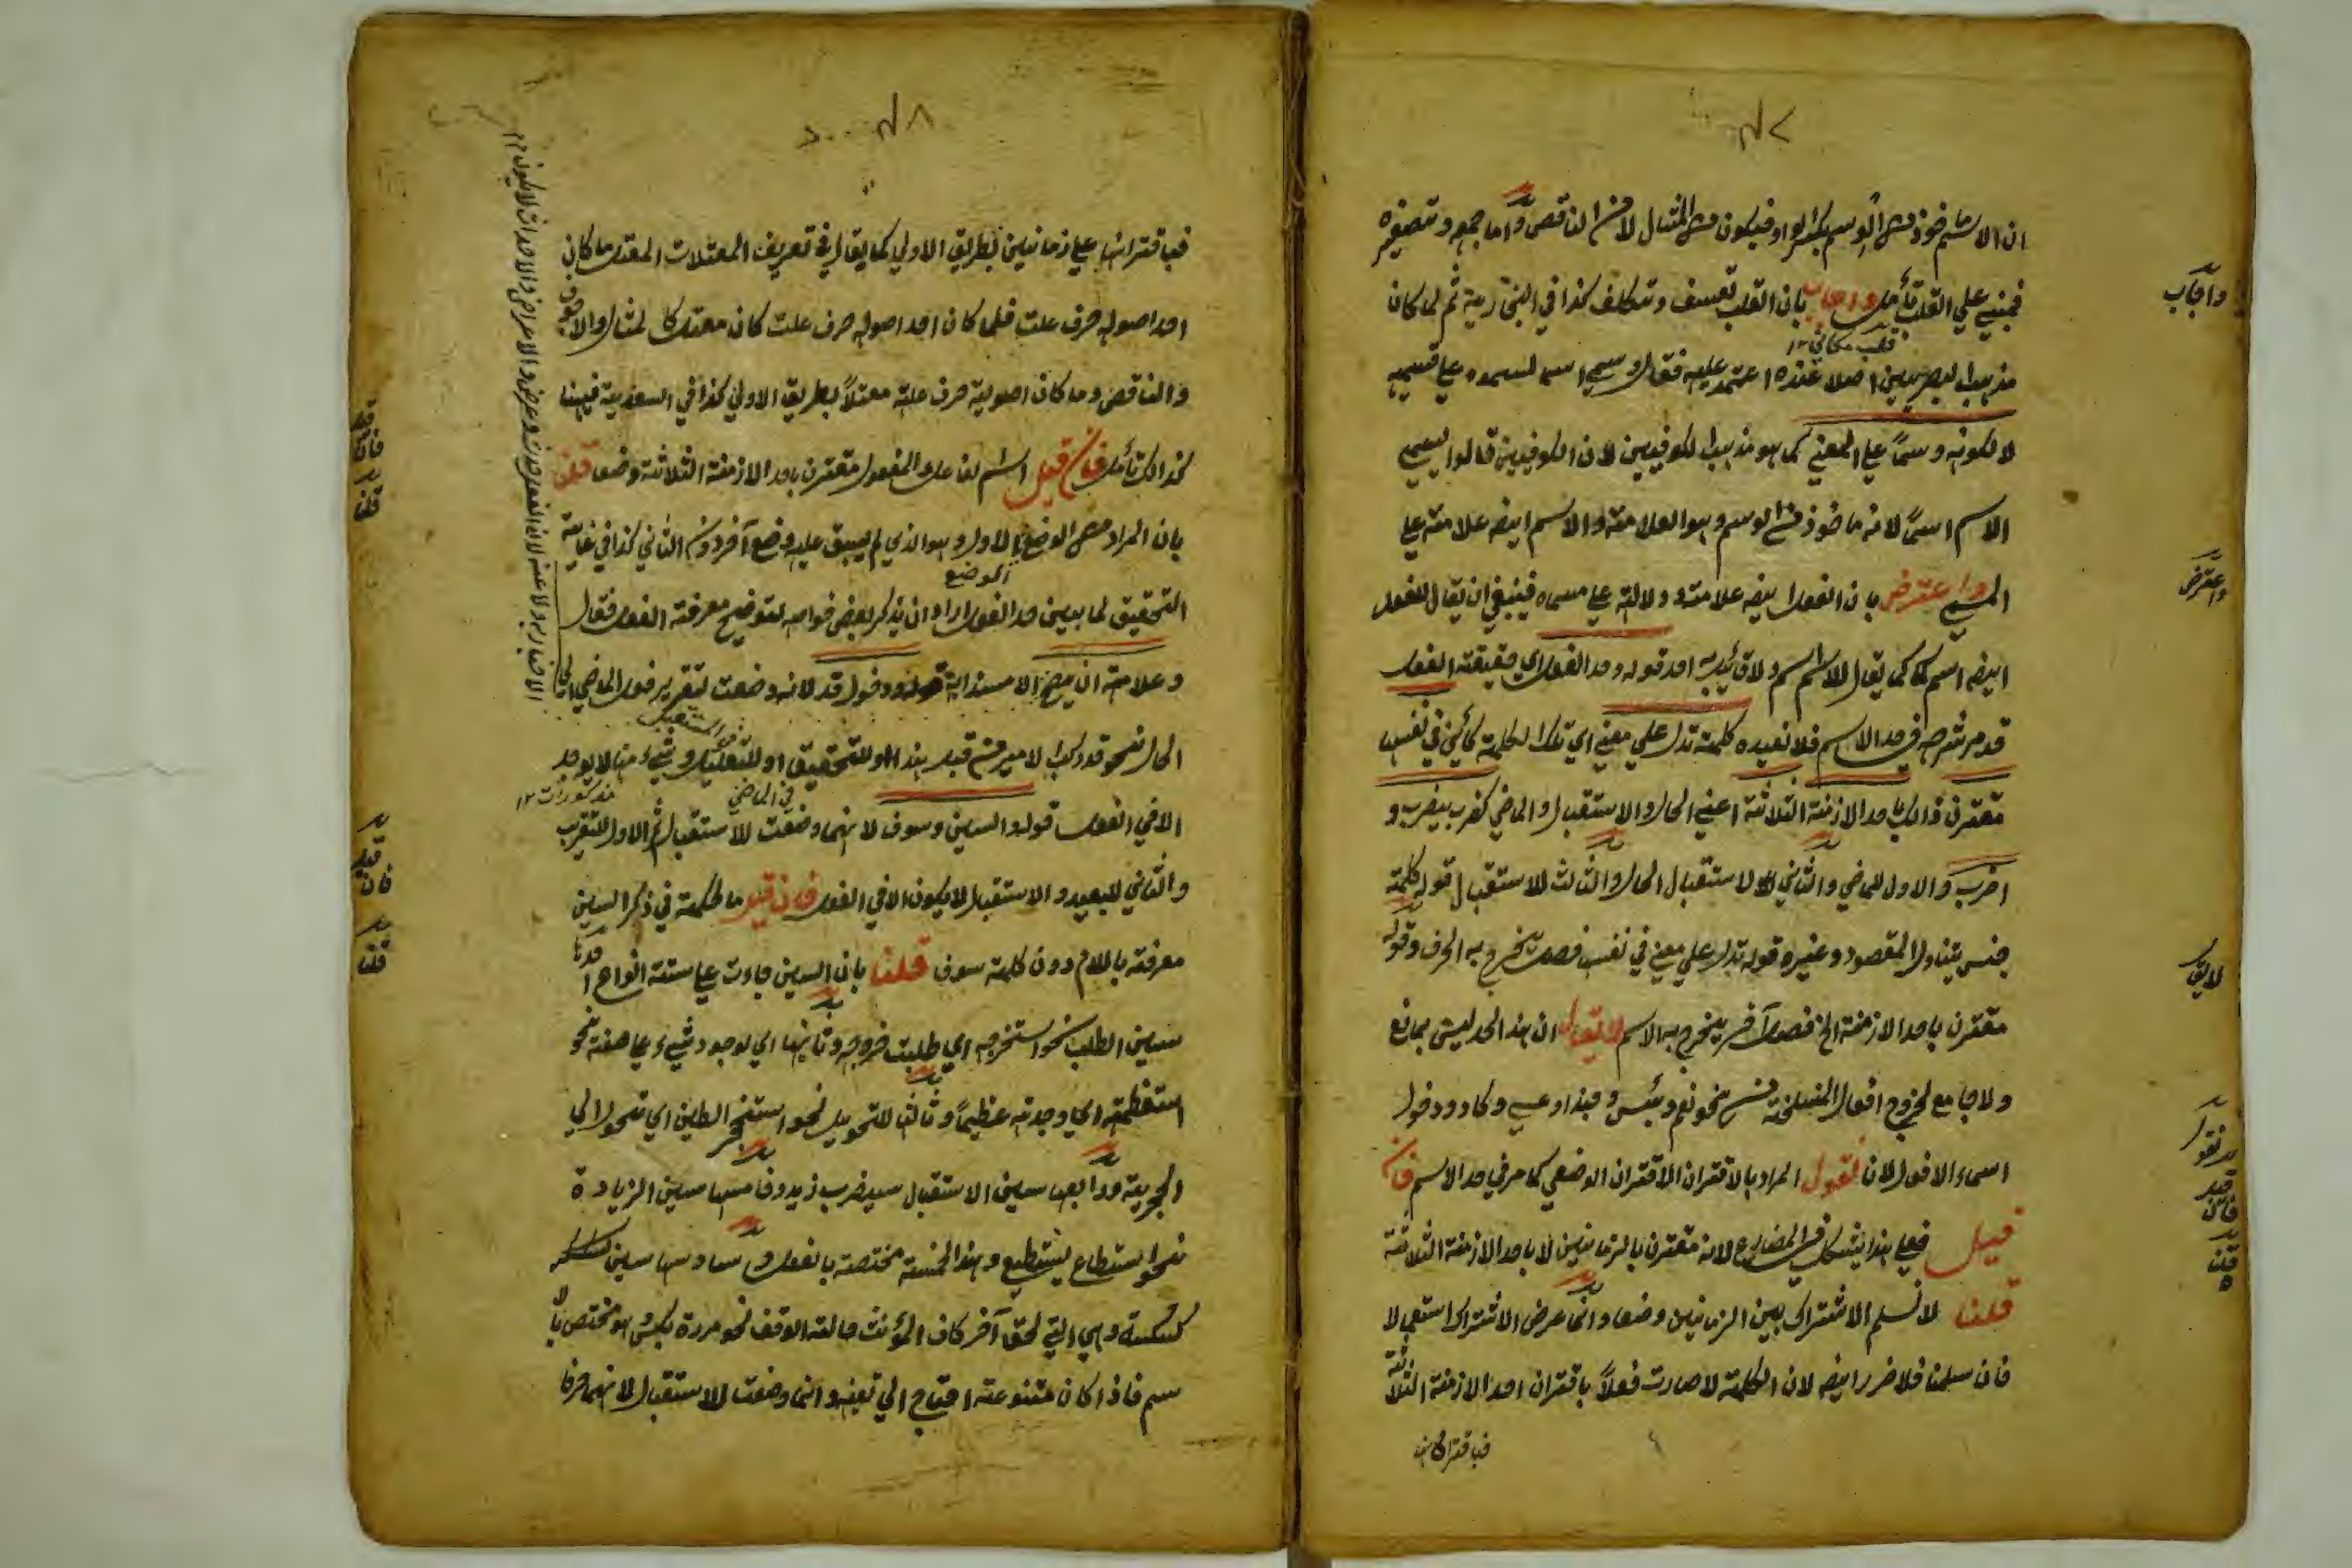 ان الاسم ماخوذ من الوسم بكسر الواو فيكون من المثال لا من الناقص واما جمعه وتصغيره
فمبني علي القلب تأمل واجاب بان القلب تعسف وتكلف كذا في ثم لما كان
قلب مكاني ١٢
مذهب البصريين اصلا عنده اعتمد عليه فقال وسمي اسما لسموه علي قسيميه
لا لكونه وسما علي المعني كما هو مذهب الكوفيين لان الكوفيين قالوا يسمي
الاسم اسمًا لانه ماخوذ من الوسم وهو العلامة والاسم ايضه علامة علي
المسمي واعترض بان الفعل ايضه علامة ودلالة علي مسماه فينبغي ان يقال للفعل
ايضه اسم كما يقال للاسم اسم ولا قائل به احد قوله وحد الفعل اي حقيقة الفعل
قد مر شرحه في حد الاسم فلا نعيده كلمة تدل علي معني اي تلك الكلمة كائن في نفسها
مقترن ذالك باحد الازمنة الثلاثة اعني الحال والاستقبال والماضي كضرب يضرب و
اضرب والاول للماضي والثاني لاستقبال الحال والثالث للاستقبال قوله كلمة
جنس يتناول المقصود وغيره قوله تدل علي معني في نفسه فصل يخرج به الحرف وقوله
مقترن باحد الازمنة الخ فصل آخر يخرج به الاسم لا يقال ان هذا الحد ليس بمانع
ولا جامع لخروج افعال المنسلخة منه نحو نعم وبئس وحبذا وعسي وكاد ودخول
اسماء الافعال لان نقول المراد بالاقتران الاقتران الوضعي كما مر في حد الاسم فان
قيل فعلي هذا يشكل في المضارع لانه مقترن بالزمانين لا باحد الازمنة الثلاثة
قلنا لا نسلم الاشتراك بين الزمانين وضعا وانما عرض الاشتراك استعمالا
فان سلمنا فلا ضرر ايضه لان الكلمة لا صارت فعلاً باقتران احد الازمنة الثلاثة
فباقترانها
واجاب
واعترض
لا يقال
نقول
فان قيل
قلنا
فباقترانها علي زمانين بطريق الاولي كما يقال في تعريف المعتلات المعتل ما كان
احد اصوله حرف علت فلما كان احد اصوله حرف علت كان معتل كالمثال والاجوف
والناقص وما كان اصوليه حرف علة معتلاً بطريق الاولي كذا في السعدية فههنا
كذالك تأمل فان قيل اسم الفاعل والمفعول مقترن باحد الازمنة الثلاثة وضعا قلنا
بان المراد من الوضع الاول وهو الذي لم يسبق عليه وضع آخر دون الثاني كذا في غاية
الموضع
التحقيق لما بين حد الفعل اراد ان يذكر بعض خواصه لتوضيح معرفة الفعل فقال
وعلامته ان يصح الاسناد اليه ودخول قد لانه وضعت لتقرير فعل الماضي الي
الحال نحو قد ركب الامير من قبل هذا او للتحقيق او للتقليل وشيء منها لا يوجد
في المستقبل
في الماضي
مذكورات ١٢
الا في الفعل قوله والسين وسوف لانهما وضعت للاستقبال ثم الاول للتقريب
والثاني للبعيد والاستقبال لا يكون الا في الفعل فان قيل ما الحكمة في ذكر السين
معرفة باللام دون كلمة سوف قلنا بان السين جاءت علي ستة انواع احدها
سين الطلب نحو استخرجه اي طلبت خروجه وثانيها اي لوجود شيء علي صفة نحو
استعظمته اي وجدته عظيماً وثالثها للتحويل نحو استحجر الطين اي تحول الي
الحجرية ورابعها سين الاستقبال سيضرب زيد وخامسها سين الزيادة
نحو استطاع يستطيع وهذا الخمسة مختصة بالفعل وسادسها سين
كسكسة وهي التي لحق آخر كاف المؤنث حالة الوقف نحو مررت بكس وهو مختص بالا
سم فاذا كان متنوعة احتاج الي تعينه وانما وضعت للاستقبال لانهما حرفا
فان قيل
قلنا
فان قيل
قلنا